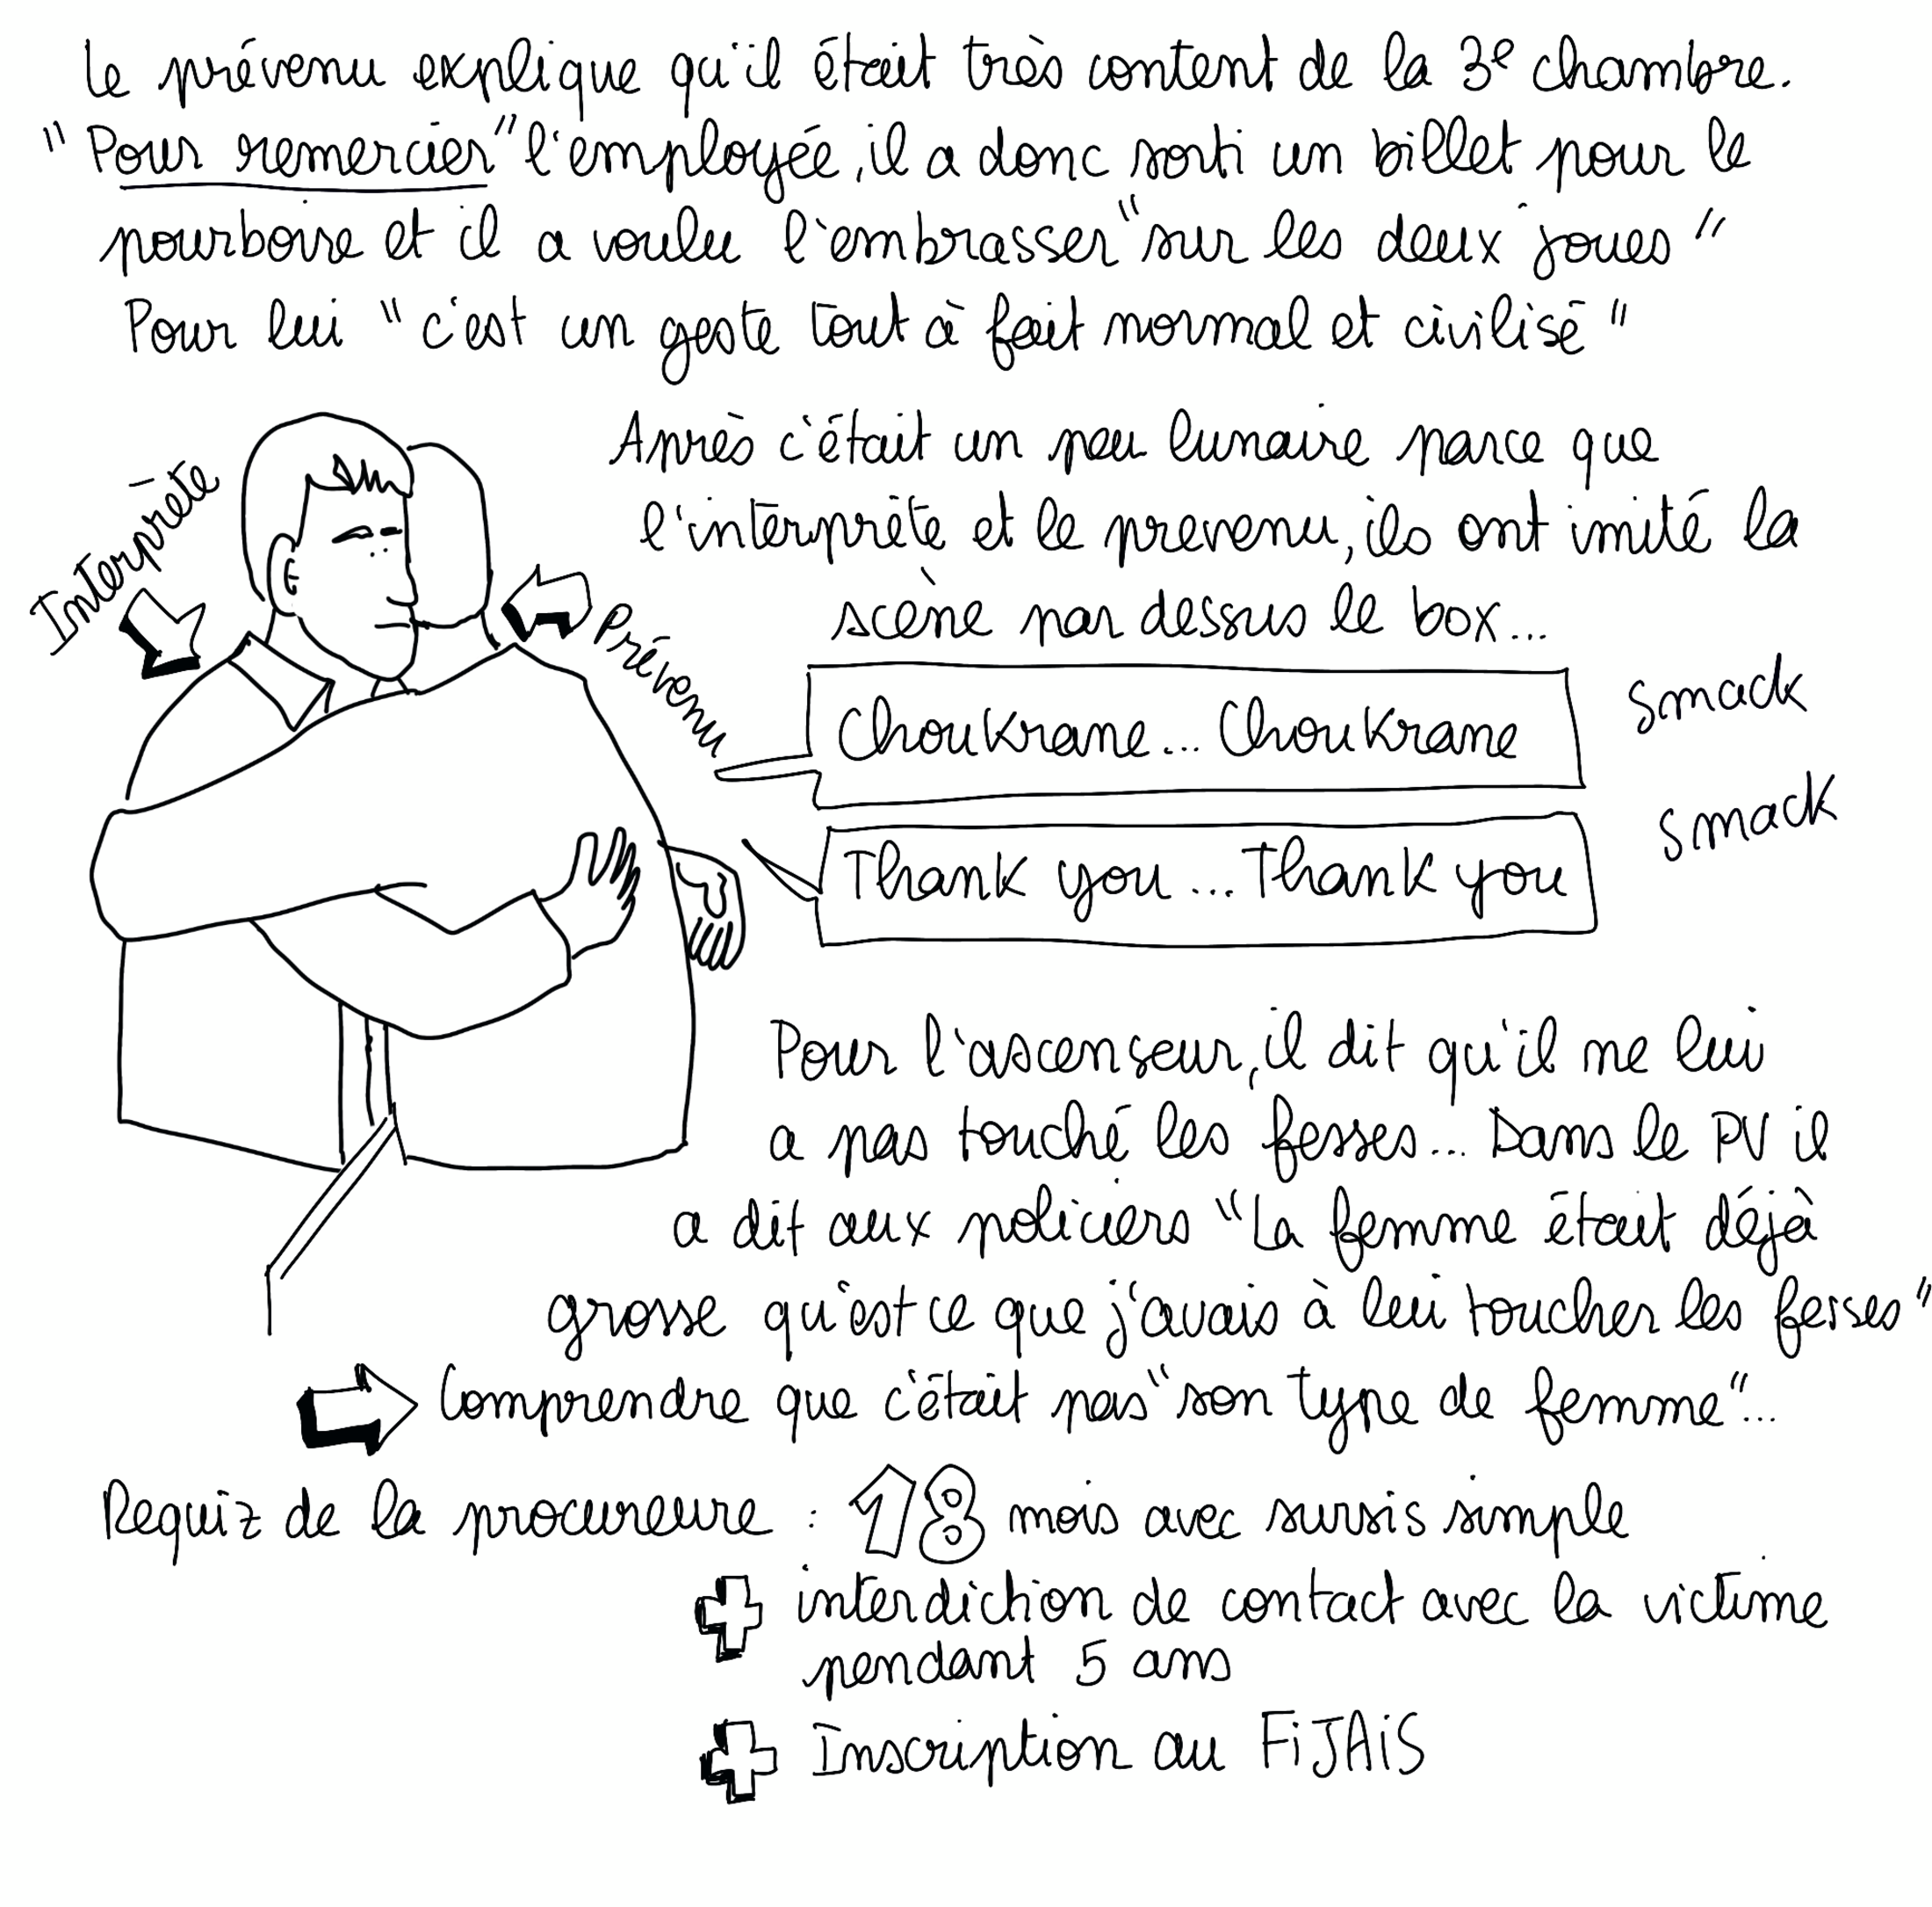 Le prévenu explique qu'il était très content de la 3e chambre.
"Pour remercier" l'employée, il a donc sorti un billet pour le
pourboire et il a voulu l'embrasser "sur les deux joues"
Pour lui "c'est un geste tout à fait normal et civilisé"
Après c'était un peu lunaire parce que
l'interprète et le prevenu, ils ont imité la
scène par dessus le box...
Interprète
Prévenu
Choukrane... Choukrane
smack
Thank you... Thank you
smack
Pour l'ascenseur, il dit qu'il ne lui
a pas touché les fesses... Dans le PV il
a dit aux policiers "La femme était déjà
grosse qu'est ce que j'avais à lui toucher les fesses"
Comprendre que c'était pas "son type de femme"...
Requiz de la procureure : 18 mois avec sursis simple
+ interdiction de contact avec la victime
pendant 5 ans
+ Inscription au FiJAiS